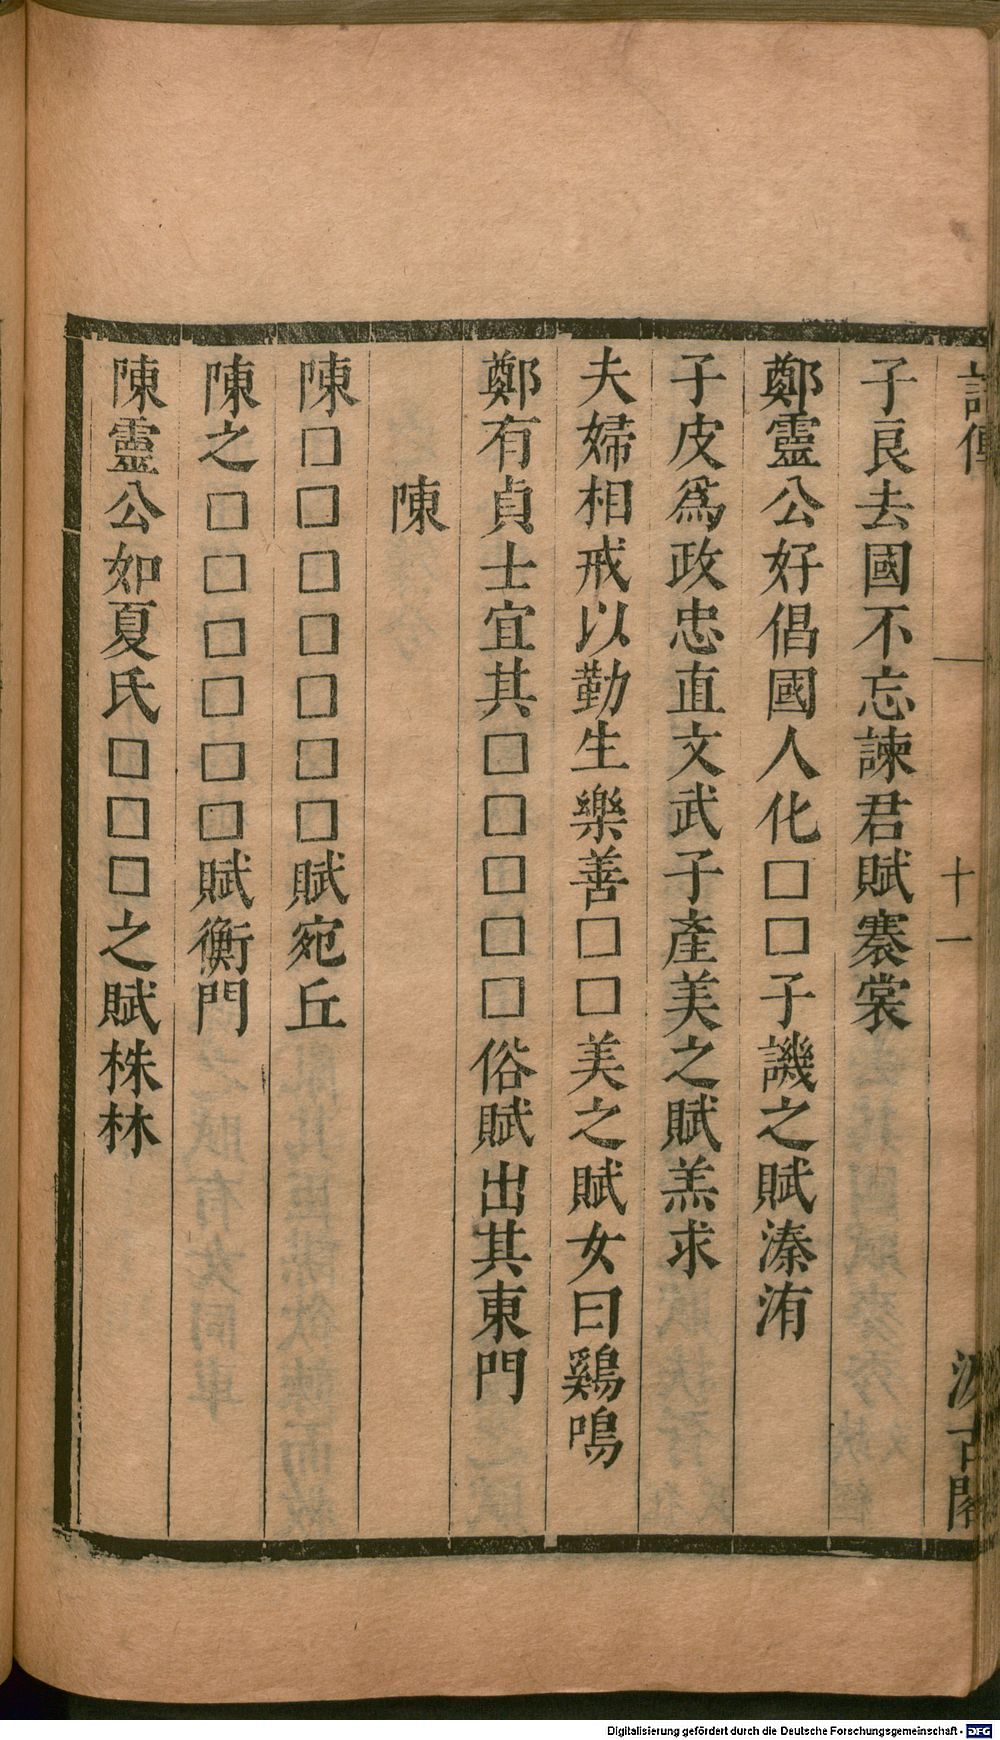 詩傳 十一 汲古閣
子良去國不忘諫君賦褰裳
鄭靈公好倡國人化□□子譏之賦溱洧
子皮爲政忠直文武子產美之賦羔求
夫婦相戒以勤生樂善□□美之賦女曰鷄鳴
鄭有貞士宜其□□□□□俗賦出其東門
陳
陳□□□□□□□賦宛丘
陳之□□□□□□賦衡門
陳靈公如夏氏□□□之賦株林
Digitalisierung gefördert durch die Deutsche Forschungsgemeinschaft - DFG